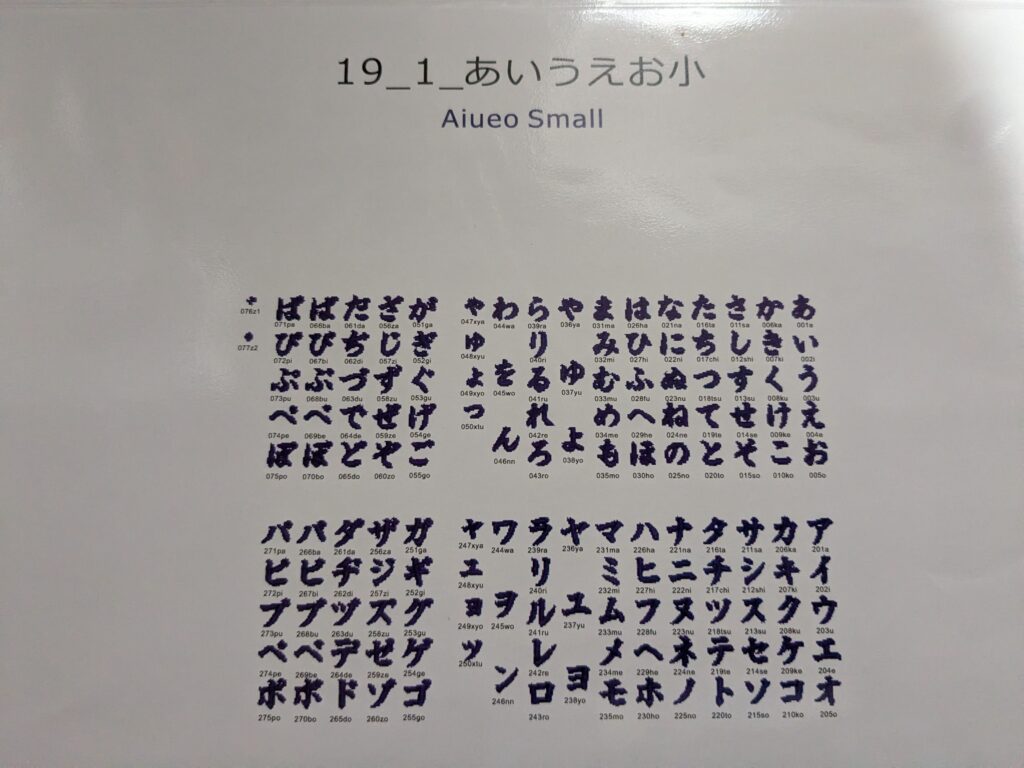 19_1_あいうえお小
Aiueo Small
ぱ ば だ ざ が ゃ わ ら や ま は な た さ か あ
076z1 071pa 066ba 061da 056za 051ga 047xya 044wa 039ra 036ya 031ma 026ha 021na 016ta 011sa 006ka 001a
ぴ び ぢ じ ぎ ゅ り み ひ に ち し き い
077z2 072pi 067bi 062di 057zi 052gi 048xyu 040ri 032mi 027hi 022ni 017chi 012shi 007ki 002i
ぷ ぶ づ ず ぐ ょ を る ゆ む ふ ぬ つ す く う
073pu 068bu 063du 058zu 053gu 049xyo 045wo 041ru 037yu 033mu 028fu 023nu 018tsu 013su 008ku 003u
ぺ べ で ぜ げ っ れ め へ ね て せ け え
074pe 069be 064de 059ze 054ge 050xtu 042re 034me 029he 024ne 019te 014se 009ke 004e
ぽ ぼ ど ぞ ご ん ろ よ も ほ の と そ こ お
075po 070bo 065do 060zo 055go 046nn 043ro 038yo 035mo 030ho 025no 020to 015so 010ko 005o
パ バ ダ ザ ガ ャ ワ ラ ヤ マ ハ ナ タ サ カ ア
271pa 266ba 261da 256za 251ga 247xya 244wa 239ra 236ya 231ma 226ha 221na 216ta 211sa 206ka 201a
ピ ビ ヂ ジ ギ ュ リ ミ ヒ ニ チ シ キ イ
272pi 267bi 262di 257zi 252gi 248xyu 240ri 232mi 227hi 222ni 217chi 212shi 207ki 202i
プ ブ ヅ ズ グ ョ ヲ ル ユ ム フ ヌ ツ ス ク ウ
273pu 268bu 263du 258zu 253gu 249xyo 245wo 241ru 237yu 233mu 228fu 223nu 218tsu 213su 208ku 203u
ペ ベ デ ゼ ゲ ッ レ メ ヘ ネ テ セ ケ エ
274pe 269be 264de 259ze 254ge 250xtu 242re 234me 229he 224ne 219te 214se 209ke 204e
ポ ボ ド ゾ ゴ ン ロ ヨ モ ホ ノ ト ソ コ オ
275po 270bo 265do 260zo 255go 246nn 243ro 238yo 235mo 230ho 225no 220to 215so 210ko 205o